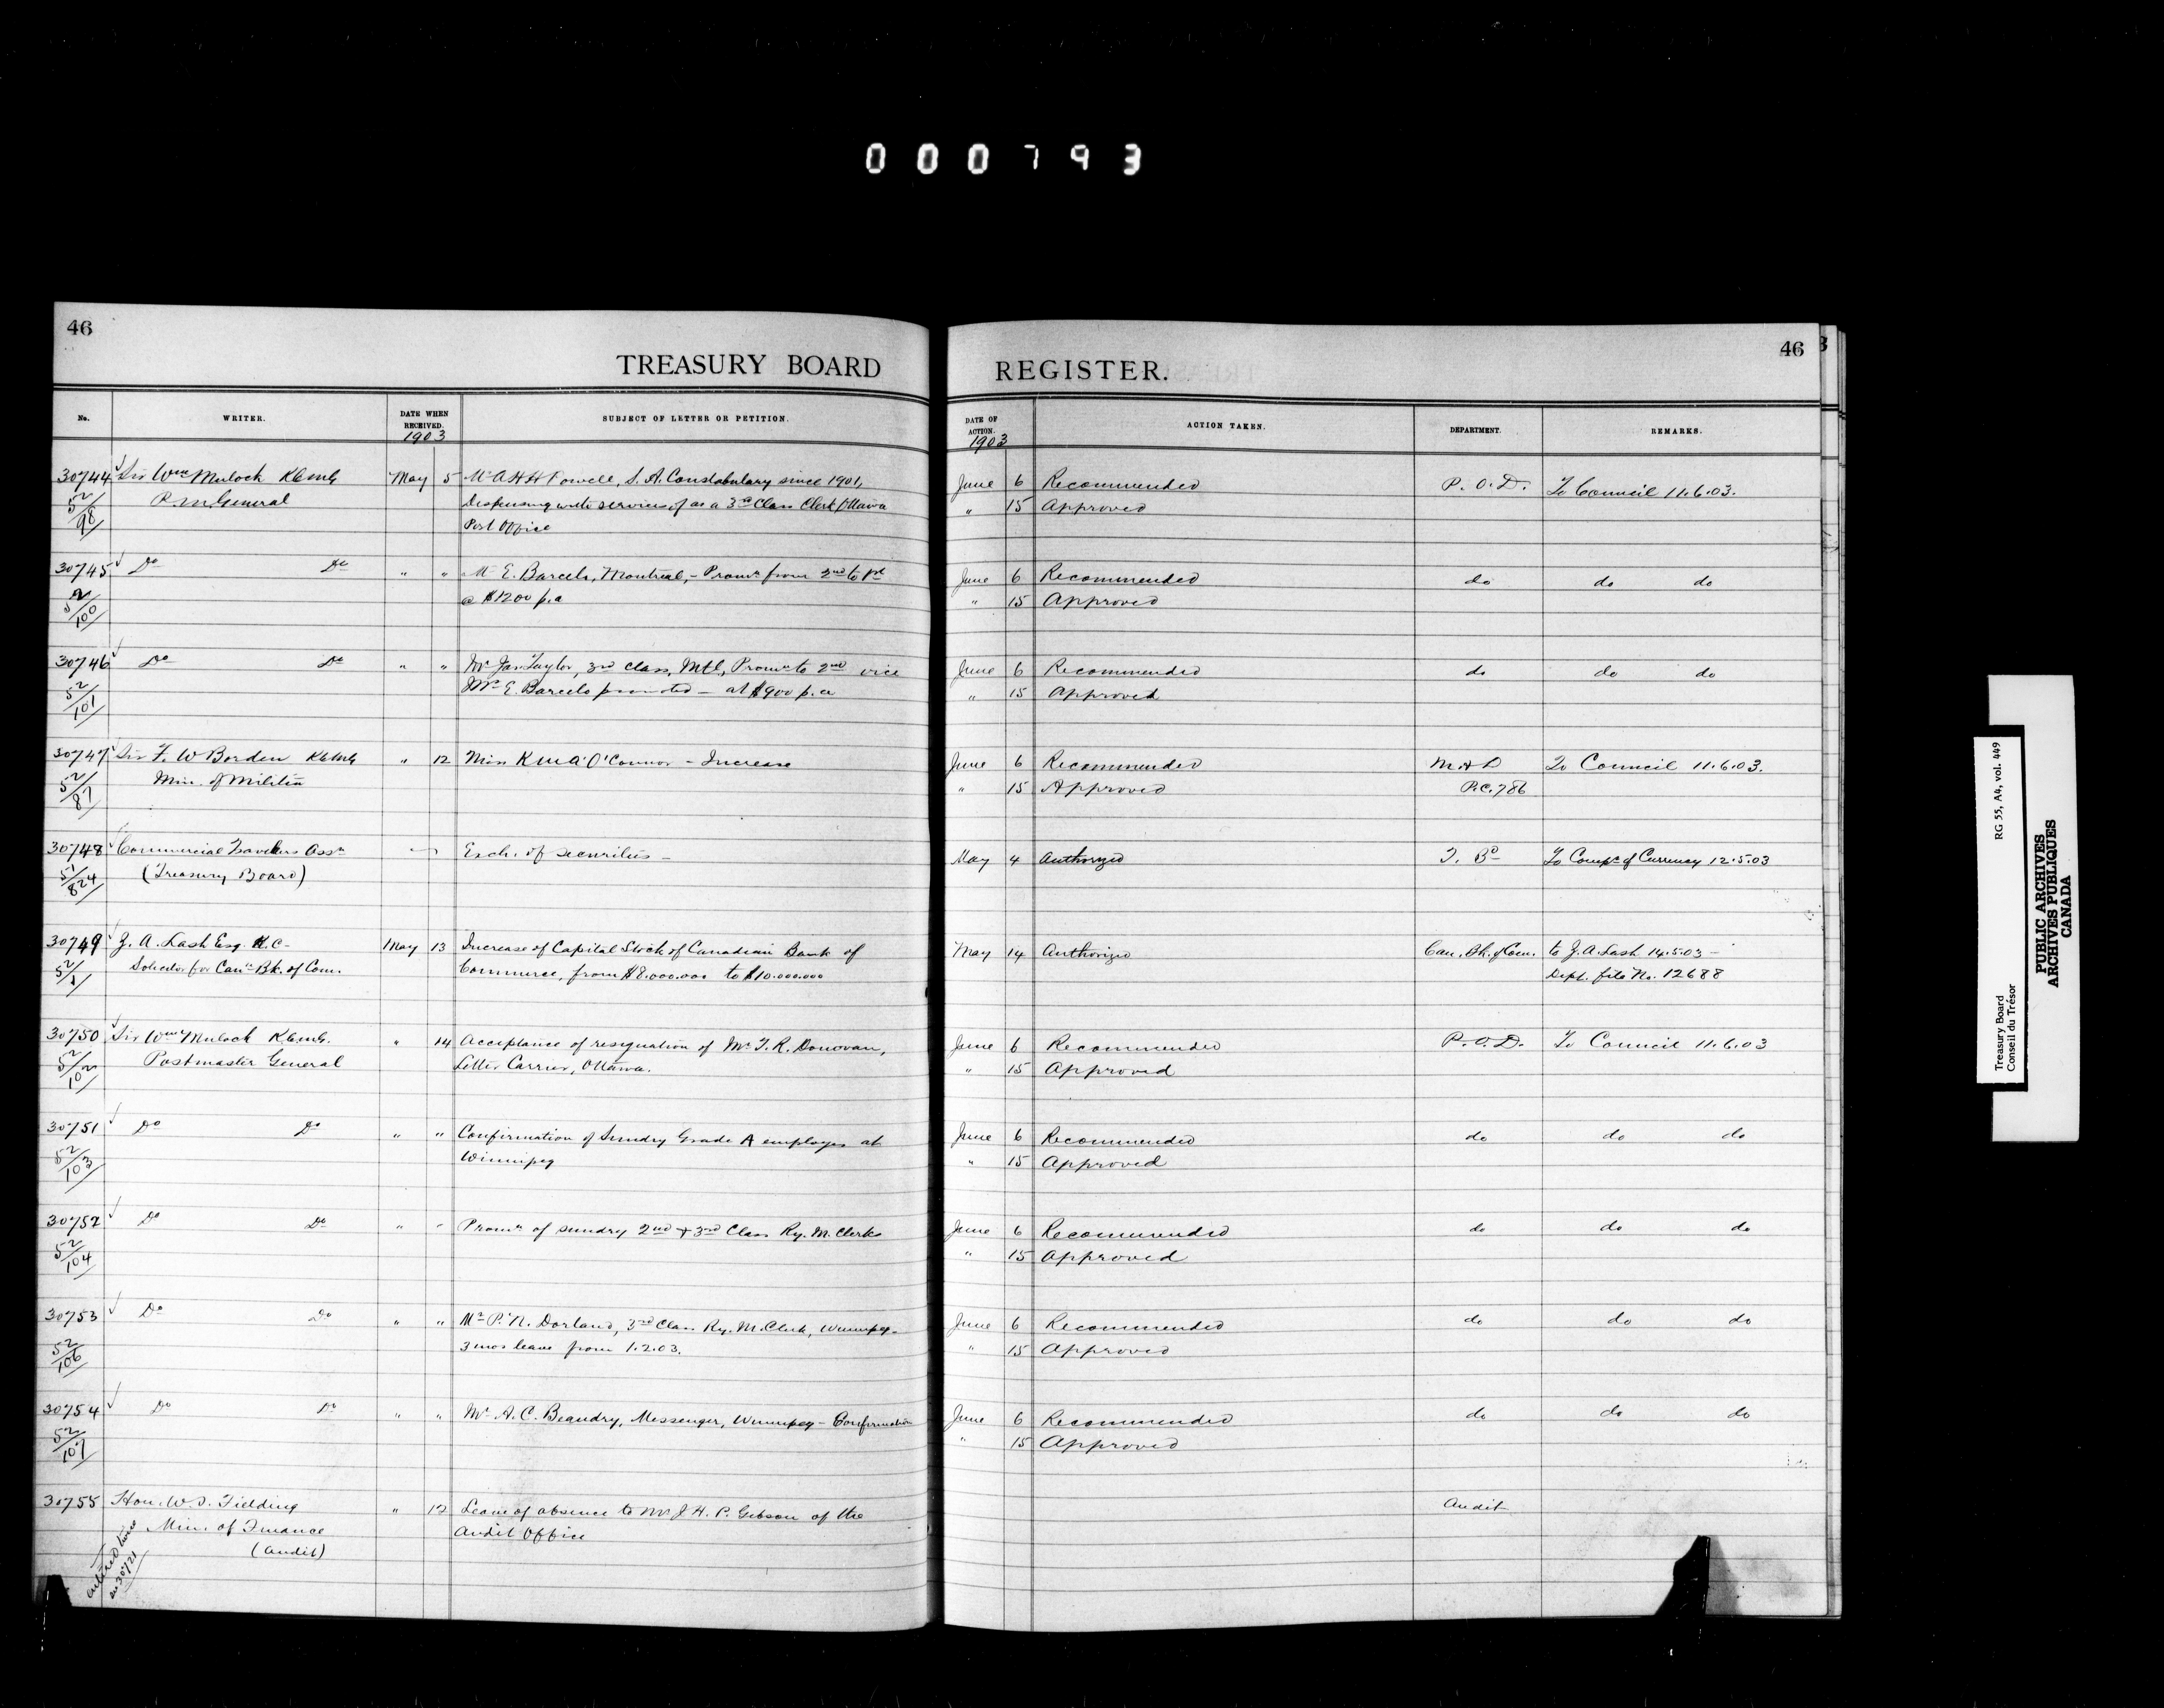 000793
46
TREASURY BOARD
REGISTER.
46
No. WRITER. DATE WHEN RECEIVED. 1903 SUBJECT OF LETTER OR PETITION. DATE OF ACTION. 1903 ACTION TAKEN. DEPARTMENT. REMARKS.
30744 Sir Wm Mulock KCMG May 5 Mr A H H Powell, S. A. Constabulary since 1901, June 6 Recommended P. O. D. To Council 11.6.03.
52/98 P. M. General Dispensing with services of as a 3rd Class Clerk Ottawa " 15 Approved
Post Office
30745 Do Do " " Mr E. Barcelo, Montreal, - Promn from 2nd to 1st June 6 Recommended do do do
52/100 @ $1200 p.a " 15 Approved
30746 Do Do " " Mr Jas. Taylor, 3rd Class, Mtl, Promn to 2nd vice June 6 Recommended do do do
52/101 Mr E. Barcelo promoted - at $900 p.a " 15 Approved
30747 Sir F. W Borden KCMG " 12 Miss K M A O'Connor - Increase June 6 Recommended M & D To Council 11.6.03.
52/87 Min. of Militia " 15 Approved P.C. 786
30748 Commercial Travellers Assn Exch. of securities - May 4 Authorized T. Bd To Compr of Currency 12.5.03
51/824 (Treasury Board)
30749 Z. A. Lash Esq. K.C- May 13 Increase of Capital Stock of Canadian Bank of May 14 Authorized Can. Bk. of Com. to Z. A. Lash 14.5.03 -
52/1 Solicitor for Can. Bk. of Com. Commerce, from $8.000.000 to $10.000.000 Dept. file No. 12688
30750 Sir Wm Mulock KCMG. " 14 Acceptance of resignation of Mr T. R. Donovan, June 6 Recommended P. O. D. To Council 11.6.03
52/102 Postmaster General Letter Carrier, Ottawa. " 15 Approved
30751 Do Do " " Confirmation of Sundry Grade A employes at June 6 Recommended do do do
52/103 Winnipeg " 15 Approved
30752 Do Do " " Promn of sundry 2nd & 3rd Class Ry. M. Clerks June 6 Recommended do do do
52/104 " 15 Approved
30753 Do Do " " Mr P. N. Dorland, 3rd Class Ry. M. Clerk, Winnipeg - June 6 Recommended do do do
52/106 3 mos leave from 1.2.03. " 15 Approved
30754 Do Do " " Mr A. C. Beaudry, Messenger, Winnipeg - Confirmation June 6 Recommended do do do
52/107 " 15 Approved
30755 Hon. W. S. Fielding " 12 Leave of absence to Mr J. H. P. Gibson of the Audit
Min. of Finance Audit Office
(Audit)
entered twice
see 30721
Treasury Board RG 55, A4, vol. 449
Conseil du Trésor
PUBLIC ARCHIVES
ARCHIVES PUBLIQUES
CANADA